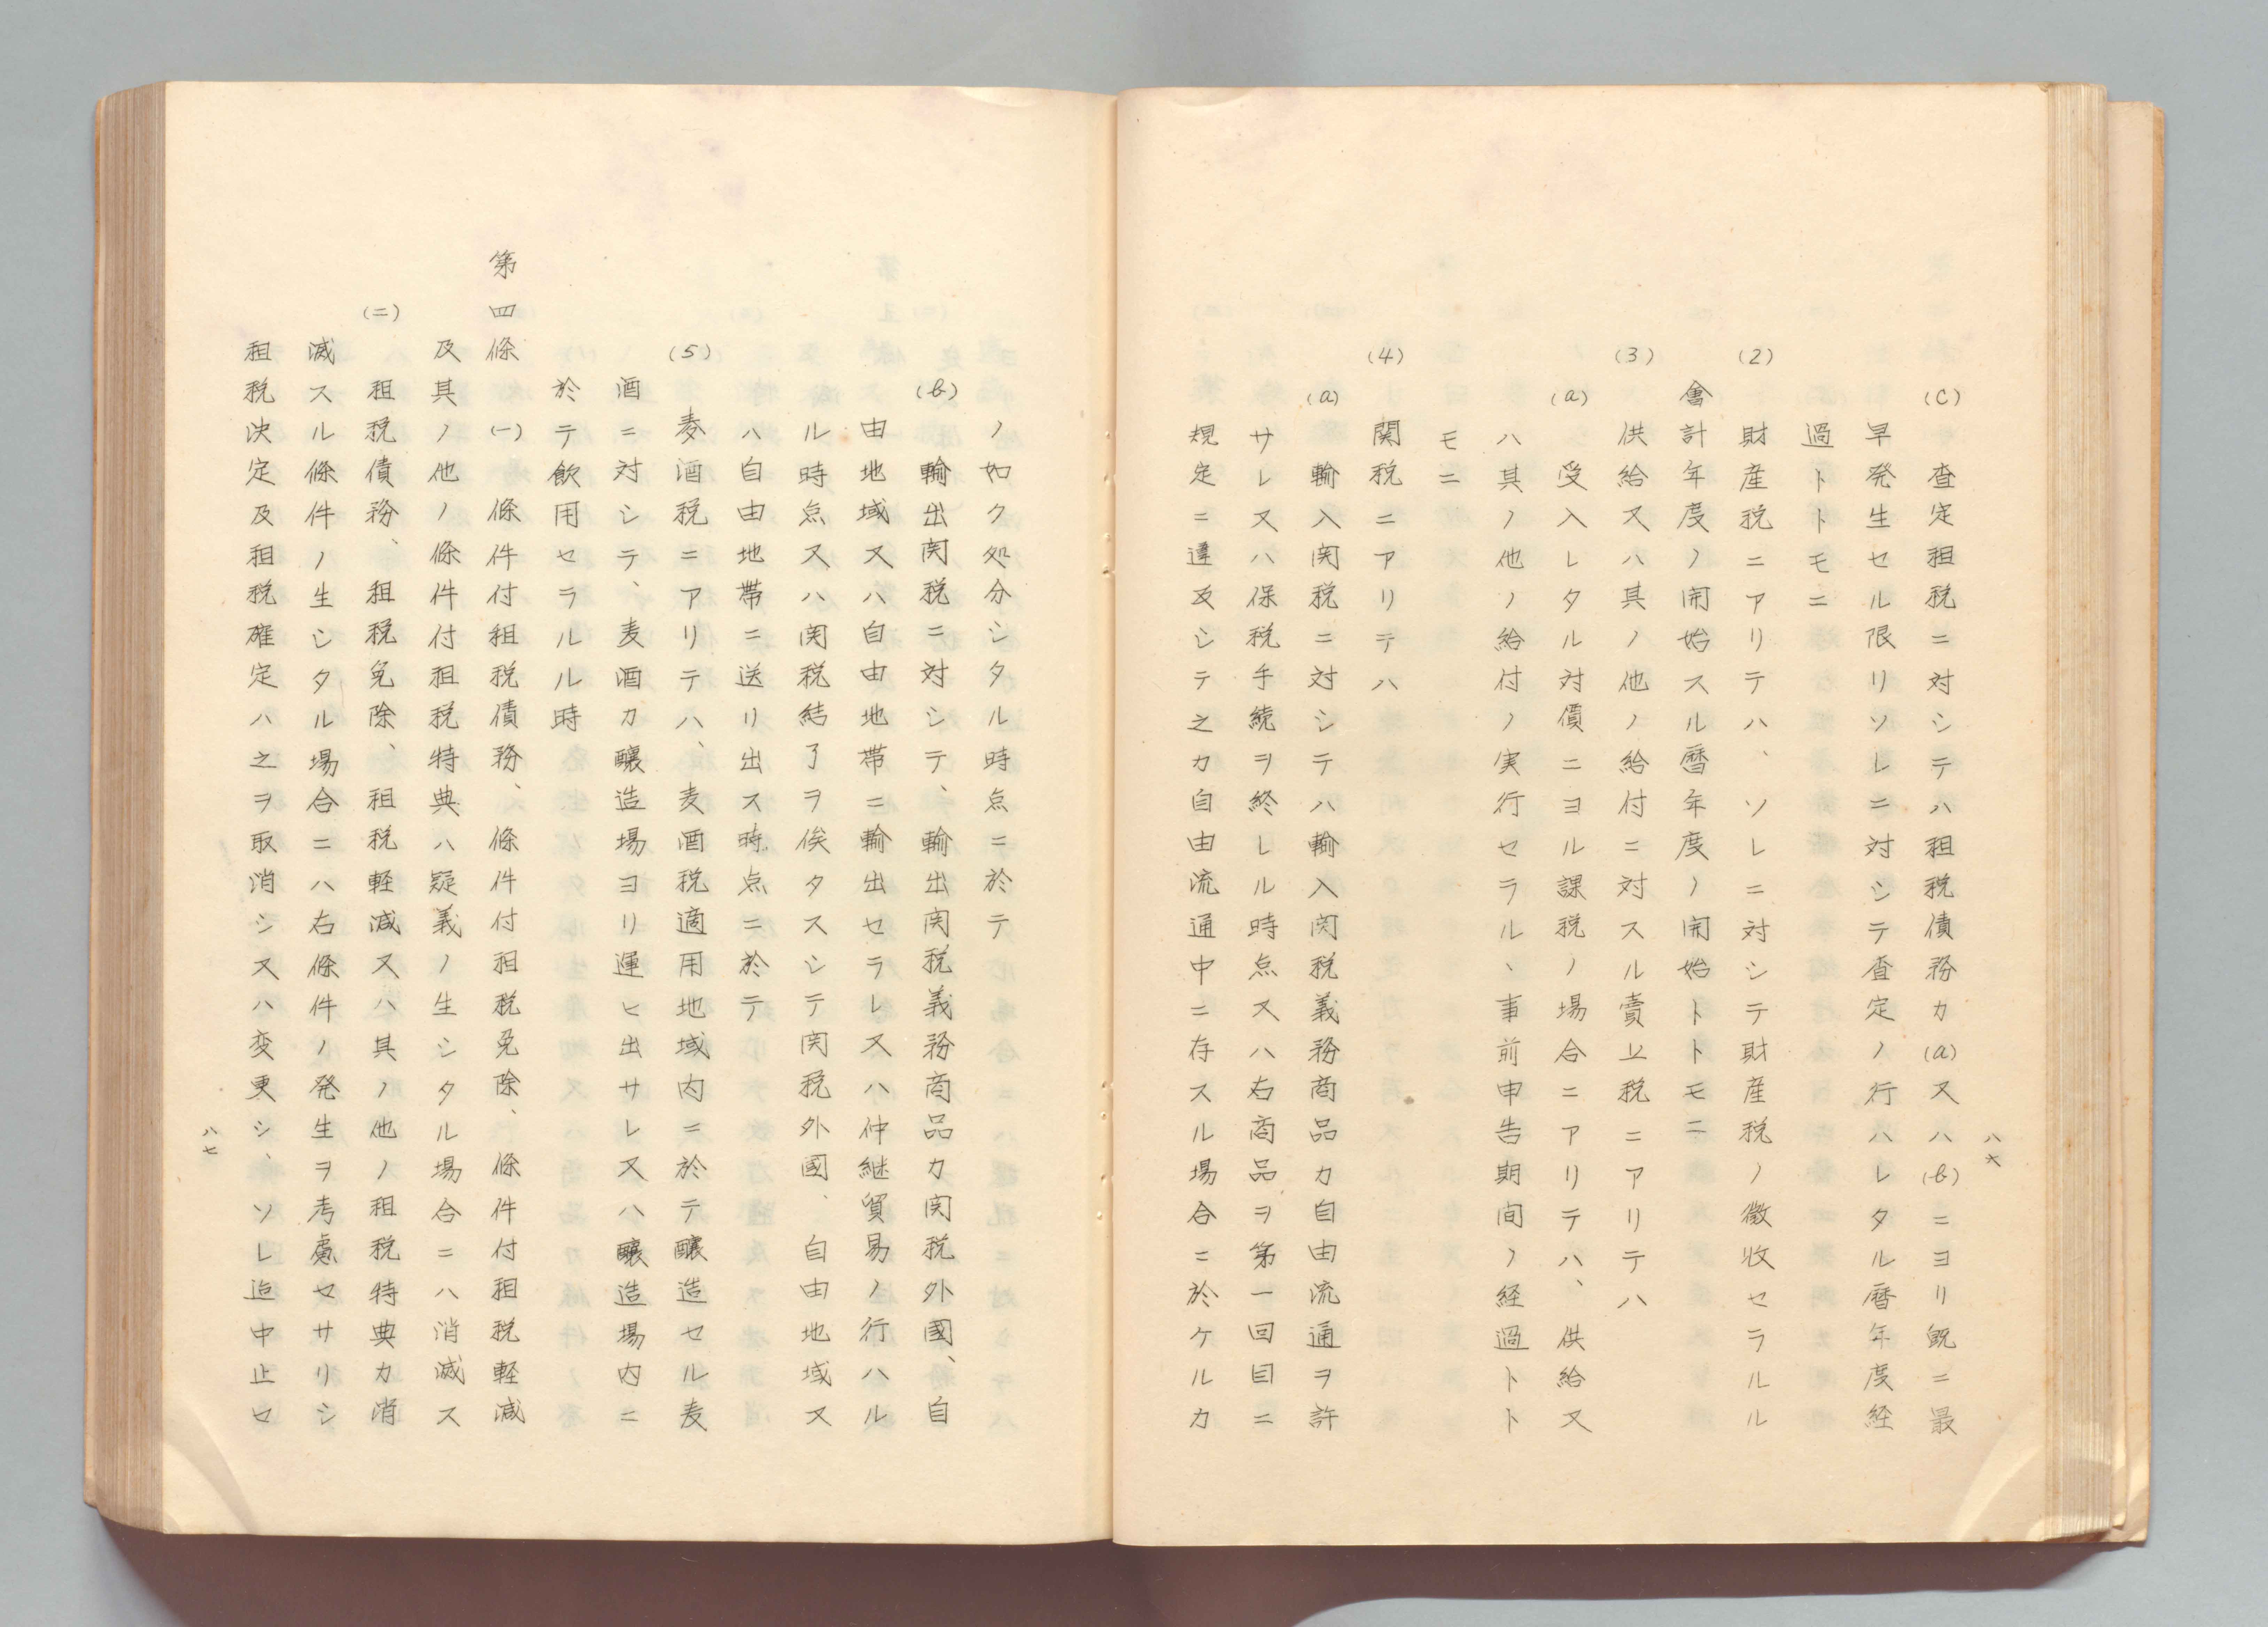 八六
(C) 査定租税ニ対シテハ租税債務カ(a)又ハ(b)ニヨリ既ニ最
早発生セル限リソレニ対シテ査定ノ行ハレタル暦年度経
過トトモニ
(2) 財産税ニアリテハ、ソレニ対シテ財産税ノ徴收セラルル
會計年度ノ開始スル暦年度ノ開始トトモニ
(3) 供給又ハ其ノ他ノ給付ニ対スル賣上税ニアリテハ
(a) 受入レタル対價ニヨル課税ノ場合ニアリテハ、供給又
ハ其ノ他ノ給付ノ実行セラル、事前申告期间ノ経過トト
モニ
(4) 関税ニアリテハ
(a) 輸入関税ニ対シテハ輸入関税義務商品カ自由流通ヲ許
サレ又ハ保税手続ヲ終レル時点又ハ右商品ヲ第一回目ニ
規定ニ違反シテ之カ自由流通中ニ存スル場合ニ於ケルカ
ノ如ク処分シタル時点ニ於テ
(b) 輸出関税ニ対シテ、輸出関税義務商品カ関税外國、自
由地域又ハ自由地帯ニ輸出セラレ又ハ仲継貿易ノ行ハル
ル時点又ハ関税結了ヲ俟タスシテ関税外國、自由地域又
ハ自由地帯ニ送リ出ス時点ニ於テ
(5) 麦酒税ニアリテハ、麦酒税適用地域内ニ於テ醸造セル麦
酒ニ対シテ、麦酒カ醸造場ヨリ運ヒ出サレ又ハ醸造場内ニ
於テ飲用セラルル時
第四條 (一) 條件付租税債務、條件付租税免除、條件付租税軽減
及其ノ他ノ條件付租税特典ハ疑義ノ生シタル場合ニハ消滅ス
(二) 租税債務、租税免除、租税軽減又ハ其ノ他ノ租税特典カ消
滅スル條件ノ生シタル場合ニハ右條件ノ発生ヲ考慮セサリシ
租税決定及租税確定ハ之ヲ取消シ又ハ変更シ、ソレ迄中止セ
八七